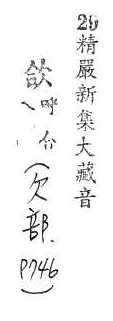 29精嚴新集大藏音
欱呼合(欠部.P746)